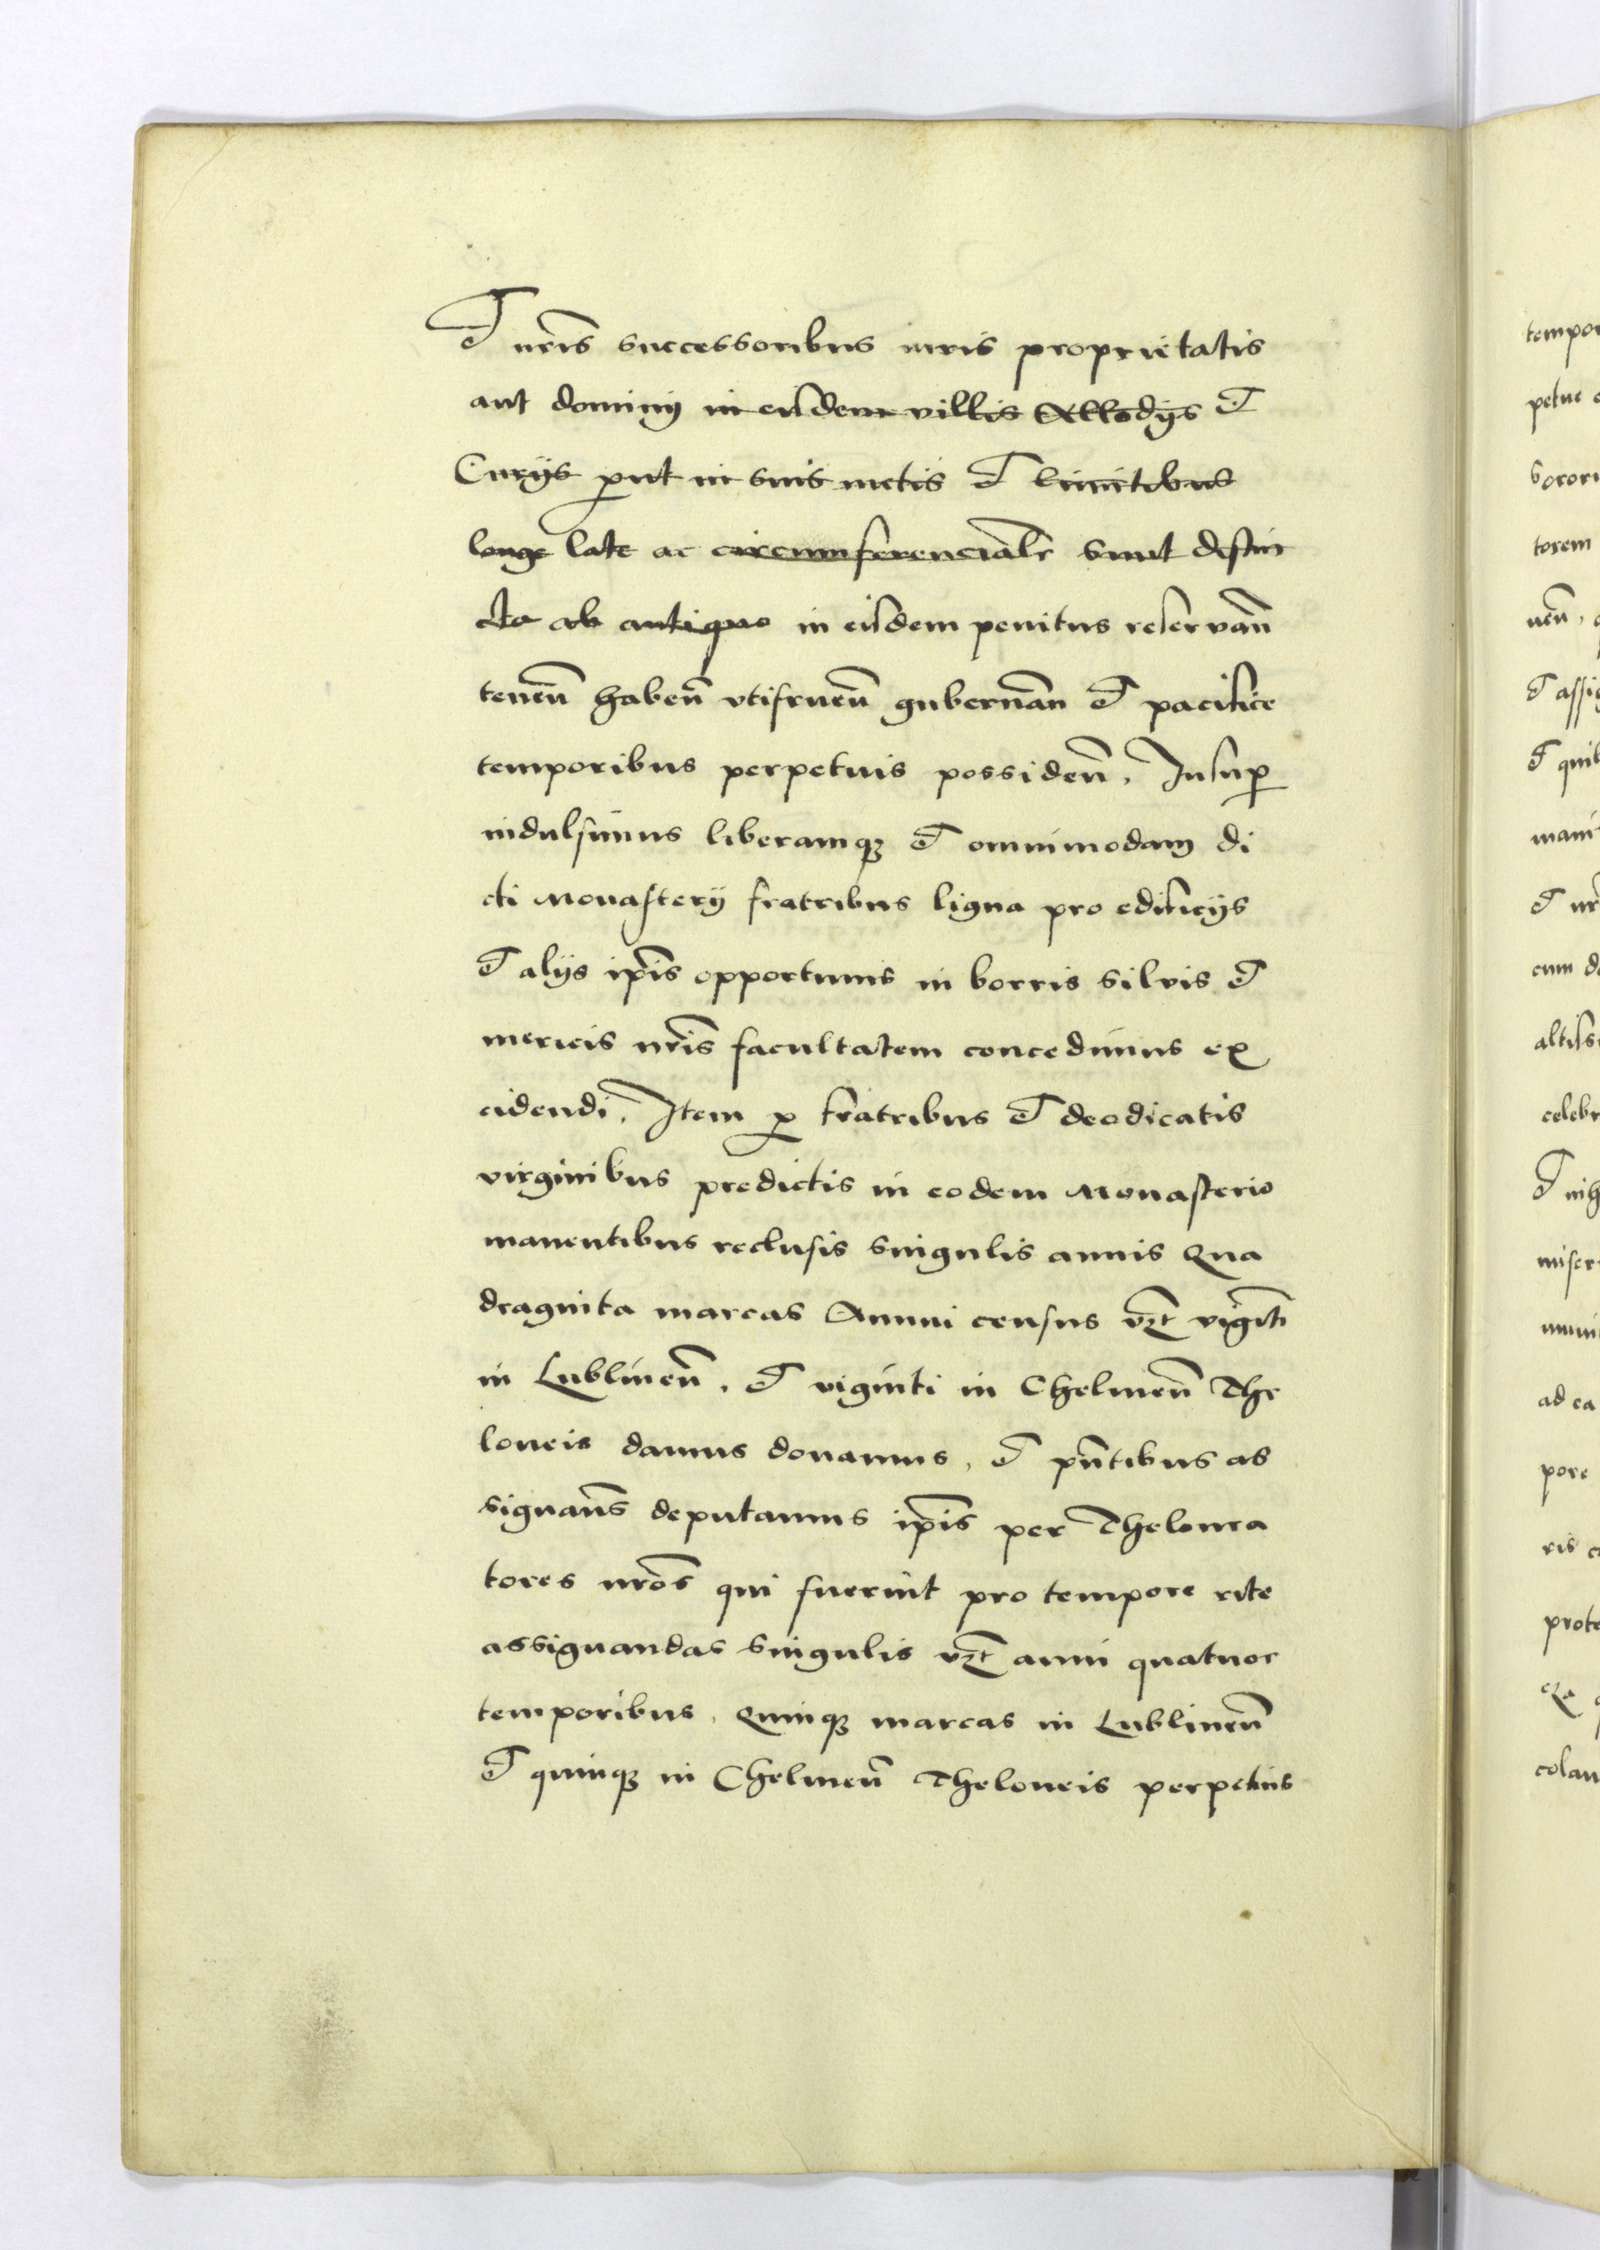 Et nr̄is successoribus iuris proprietatis
aut dominij in eisdem villis Allodijs et
Curijs prout in suis metis et limitibus
longe late ac circumferencialr sunt distin
cta ab antiquo in eisdem penitus reservan̄
tenen̄ haben̄ vtifruen̄ gubernan̄ et pacifice
temporibus perpetuis possiden̄. Insup
indulsimus liberamq₃ et omnimodam di
cti Monasterij fratribus ligna pro edificijs
et alijs ip̄is opportunis in borris silvis et
mericis nr̄is facultatem concedimus ex
cidendi. Item p fratribus et deodicatis
virginibus predictis in eodem Monasterio
manentibus reclusis singulis annis Qua
draginta marcas Annui census vz̄t viginti
in Lublinen̄, et viginti in Chelmen̄ The
loneis damus donamus, et pn̄tibus as
signan̄s deputamus ip̄is per Thelonea
tores nr̄os qui fuerint pro tempore rite
assignandas singulis vz̄t anni quatuor
temporibus, Quinq₃ marcas in Lublinen̄
et quinq₃ in Chelmen̄ Theloneis perpetuis
tempor
petue
soror
torem
uen̄,
et assig
et quib
mani
et nr
cum d
altiss
celebr
Et nih
miser
muni
ad ea
pore
ris c
prote
colan